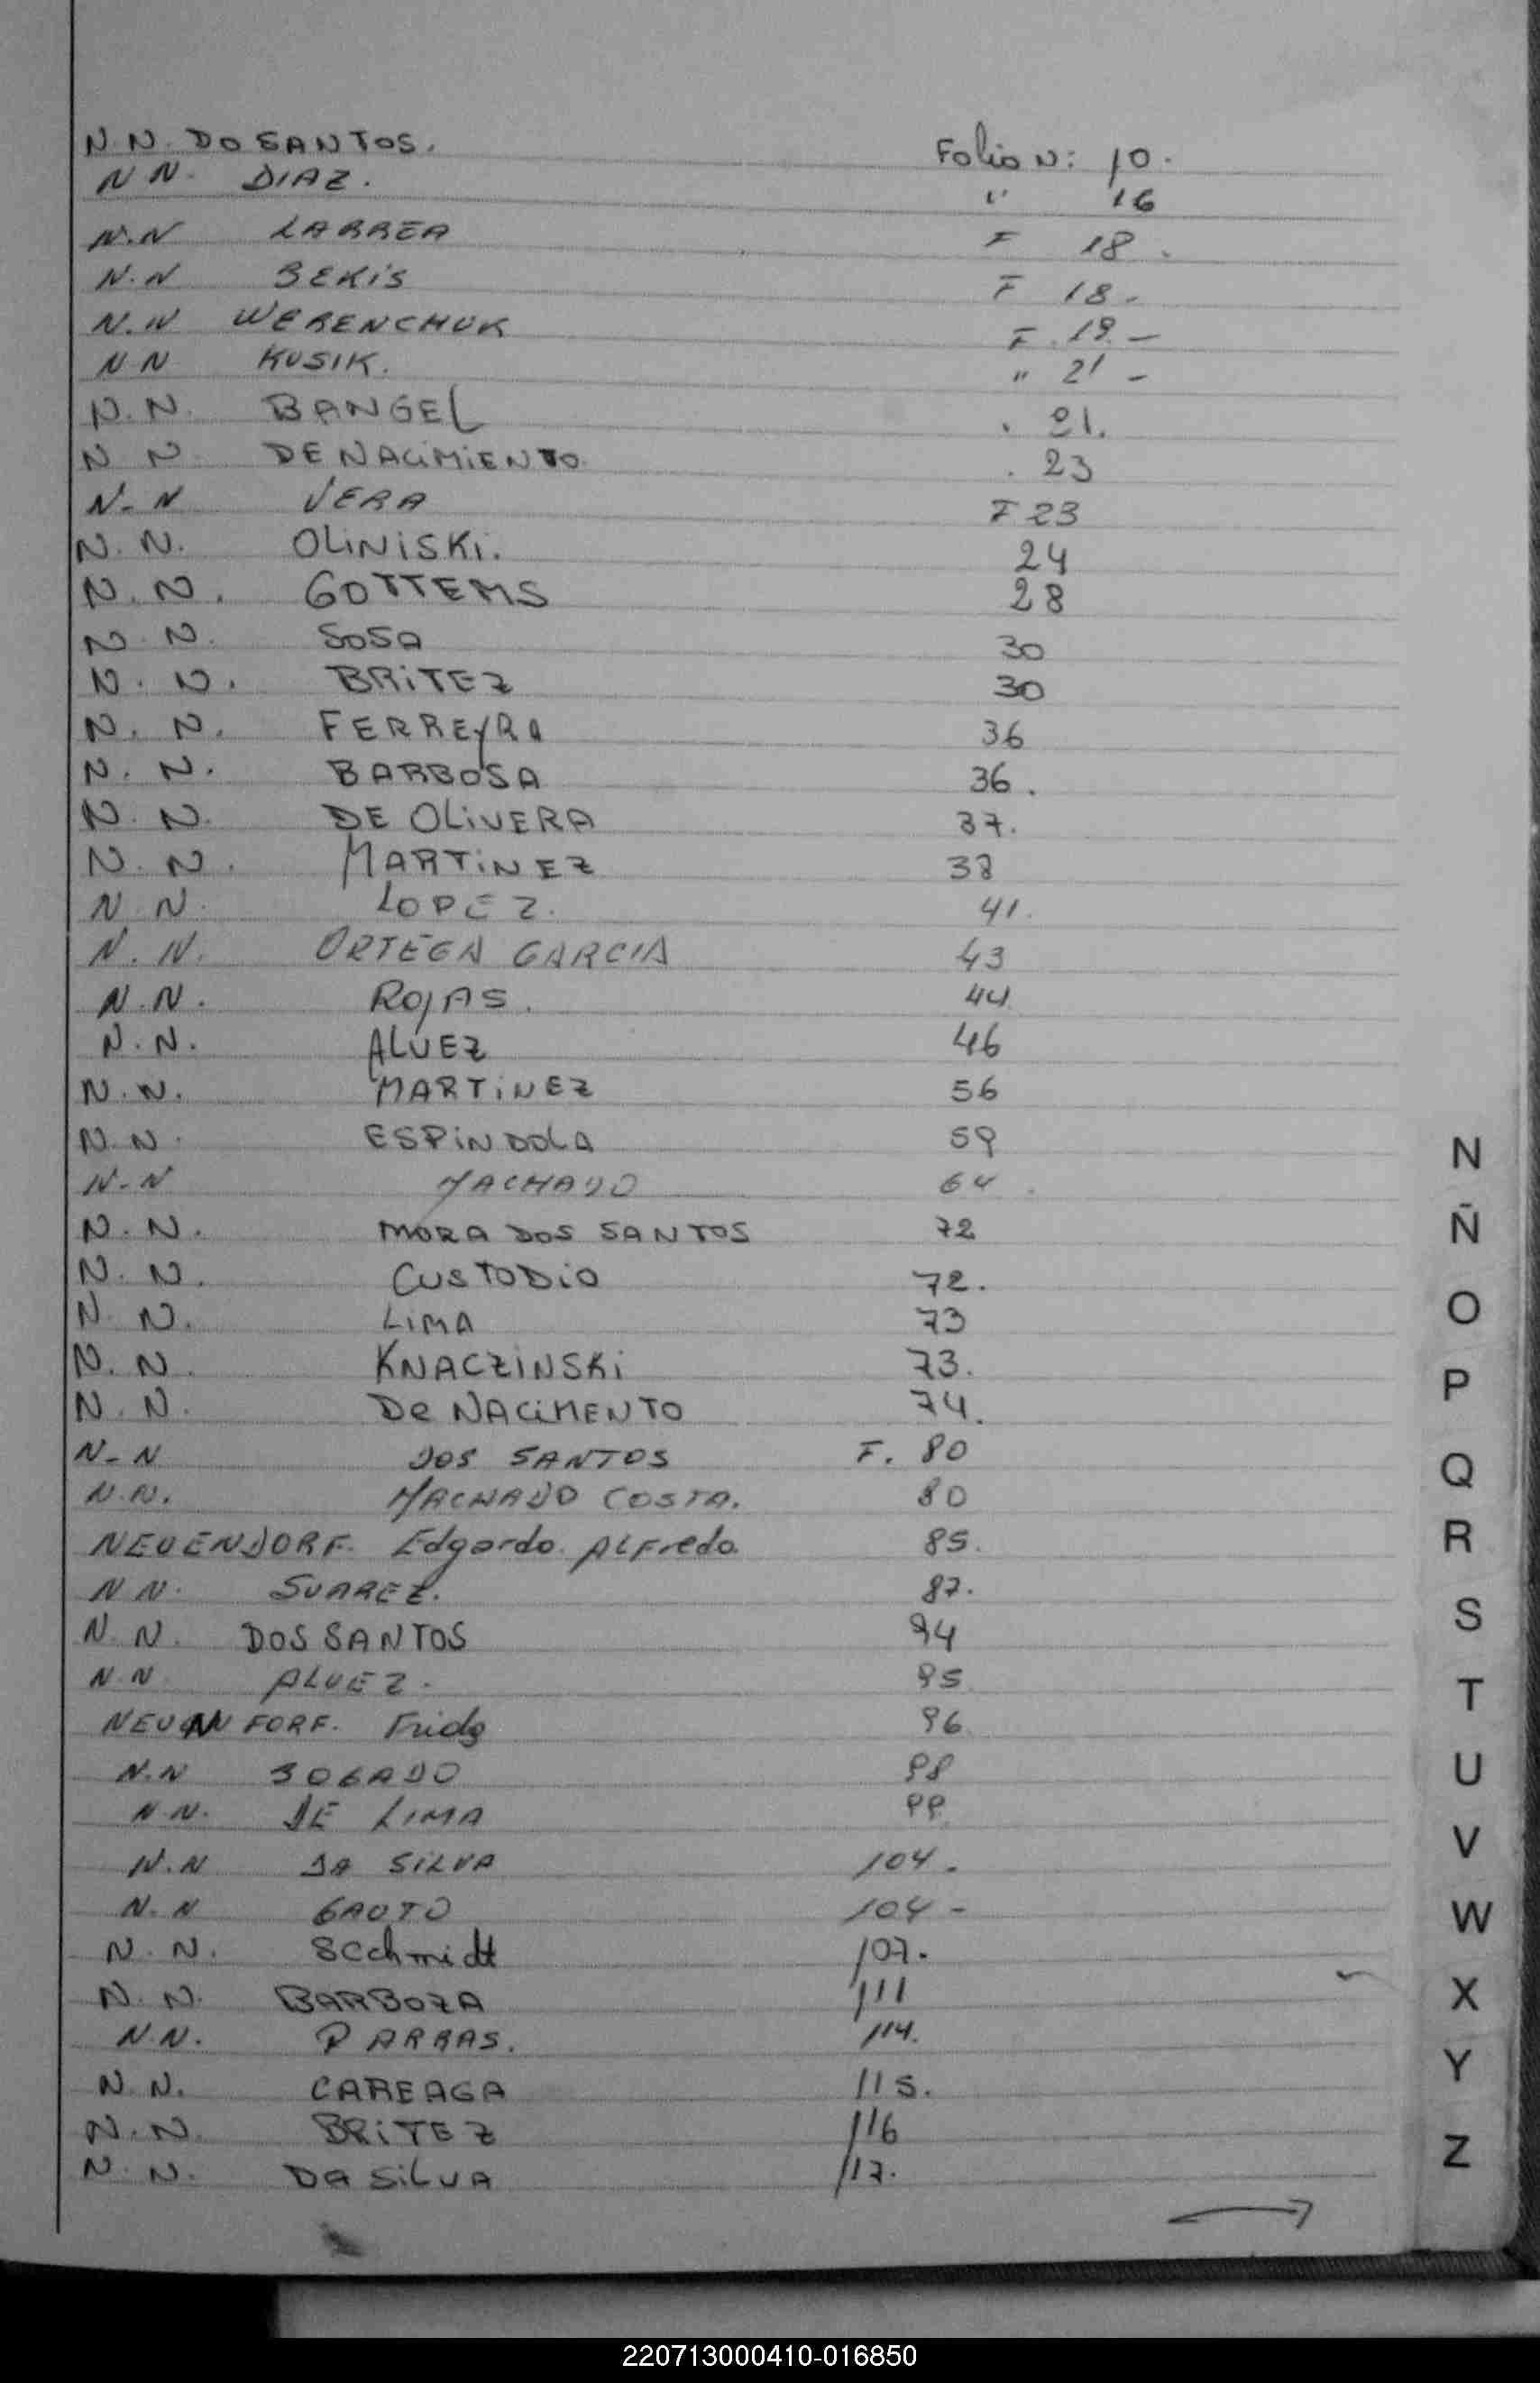 N.N. DO SANTOS. Folio N: 10.
N N. DIAZ. " 16
N.N LARREA F 18.
N.N BEKIS F 18-
N.N WERENCHUK F. 19.-
N N KUSIK. " 21 -
N.N. BANGEL . 21.
N N. DE NACIMIENTO. . 23
N-N VERA F 23
N.N. OLINISKI. 24
N.N. GOTTEMS 28
N.N. SOSA 30
N.N. BRITEZ 30
N.N. FERREYRA 36
N.N. BARBOSA 36.
N.N. DE OLIVERA 37.
N.N. MARTINEZ 38
N N. LOPEZ. 41.
N.N. ORTEGA GARCIA 43
N.N. ROJAS. 44
N.N. ALVEZ 46
N.N. MARTINEZ 56
N.N. ESPINDOLA 59
N-N MACHADO 64.
N.N. MORA DOS SANTOS 72
N.N. CUSTODIO 72.
N.N. LIMA 73
N.N. KNACZINSKI 73.
N.N. De NACIMENTO 74.
N-N DOS SANTOS F. 80
N.N. MACHADO COSTA. 80
NEUENDORF. Edgardo. ALFredo. 85.
N N. SUAREZ. 87.
N.N. DOS SANTOS 94
N.N ALVEZ. 95
NEUNFORF. Frida 96
N.N BOGADO 98
N.N. DE LIMA 99
N.N DA SILVA 104.
N.N GAUTO 104-
N.N. SCchmidt 107.
N.N. BARBOZA 111
N.N. PARRAS. 114.
N.N. CAREAGA 115.
N.N. BRITEZ 116
N.N. DA SILVA 117.
N
Ñ
O
P
Q
R
S
T
U
V
W
X
Y
Z
220713000410-016850